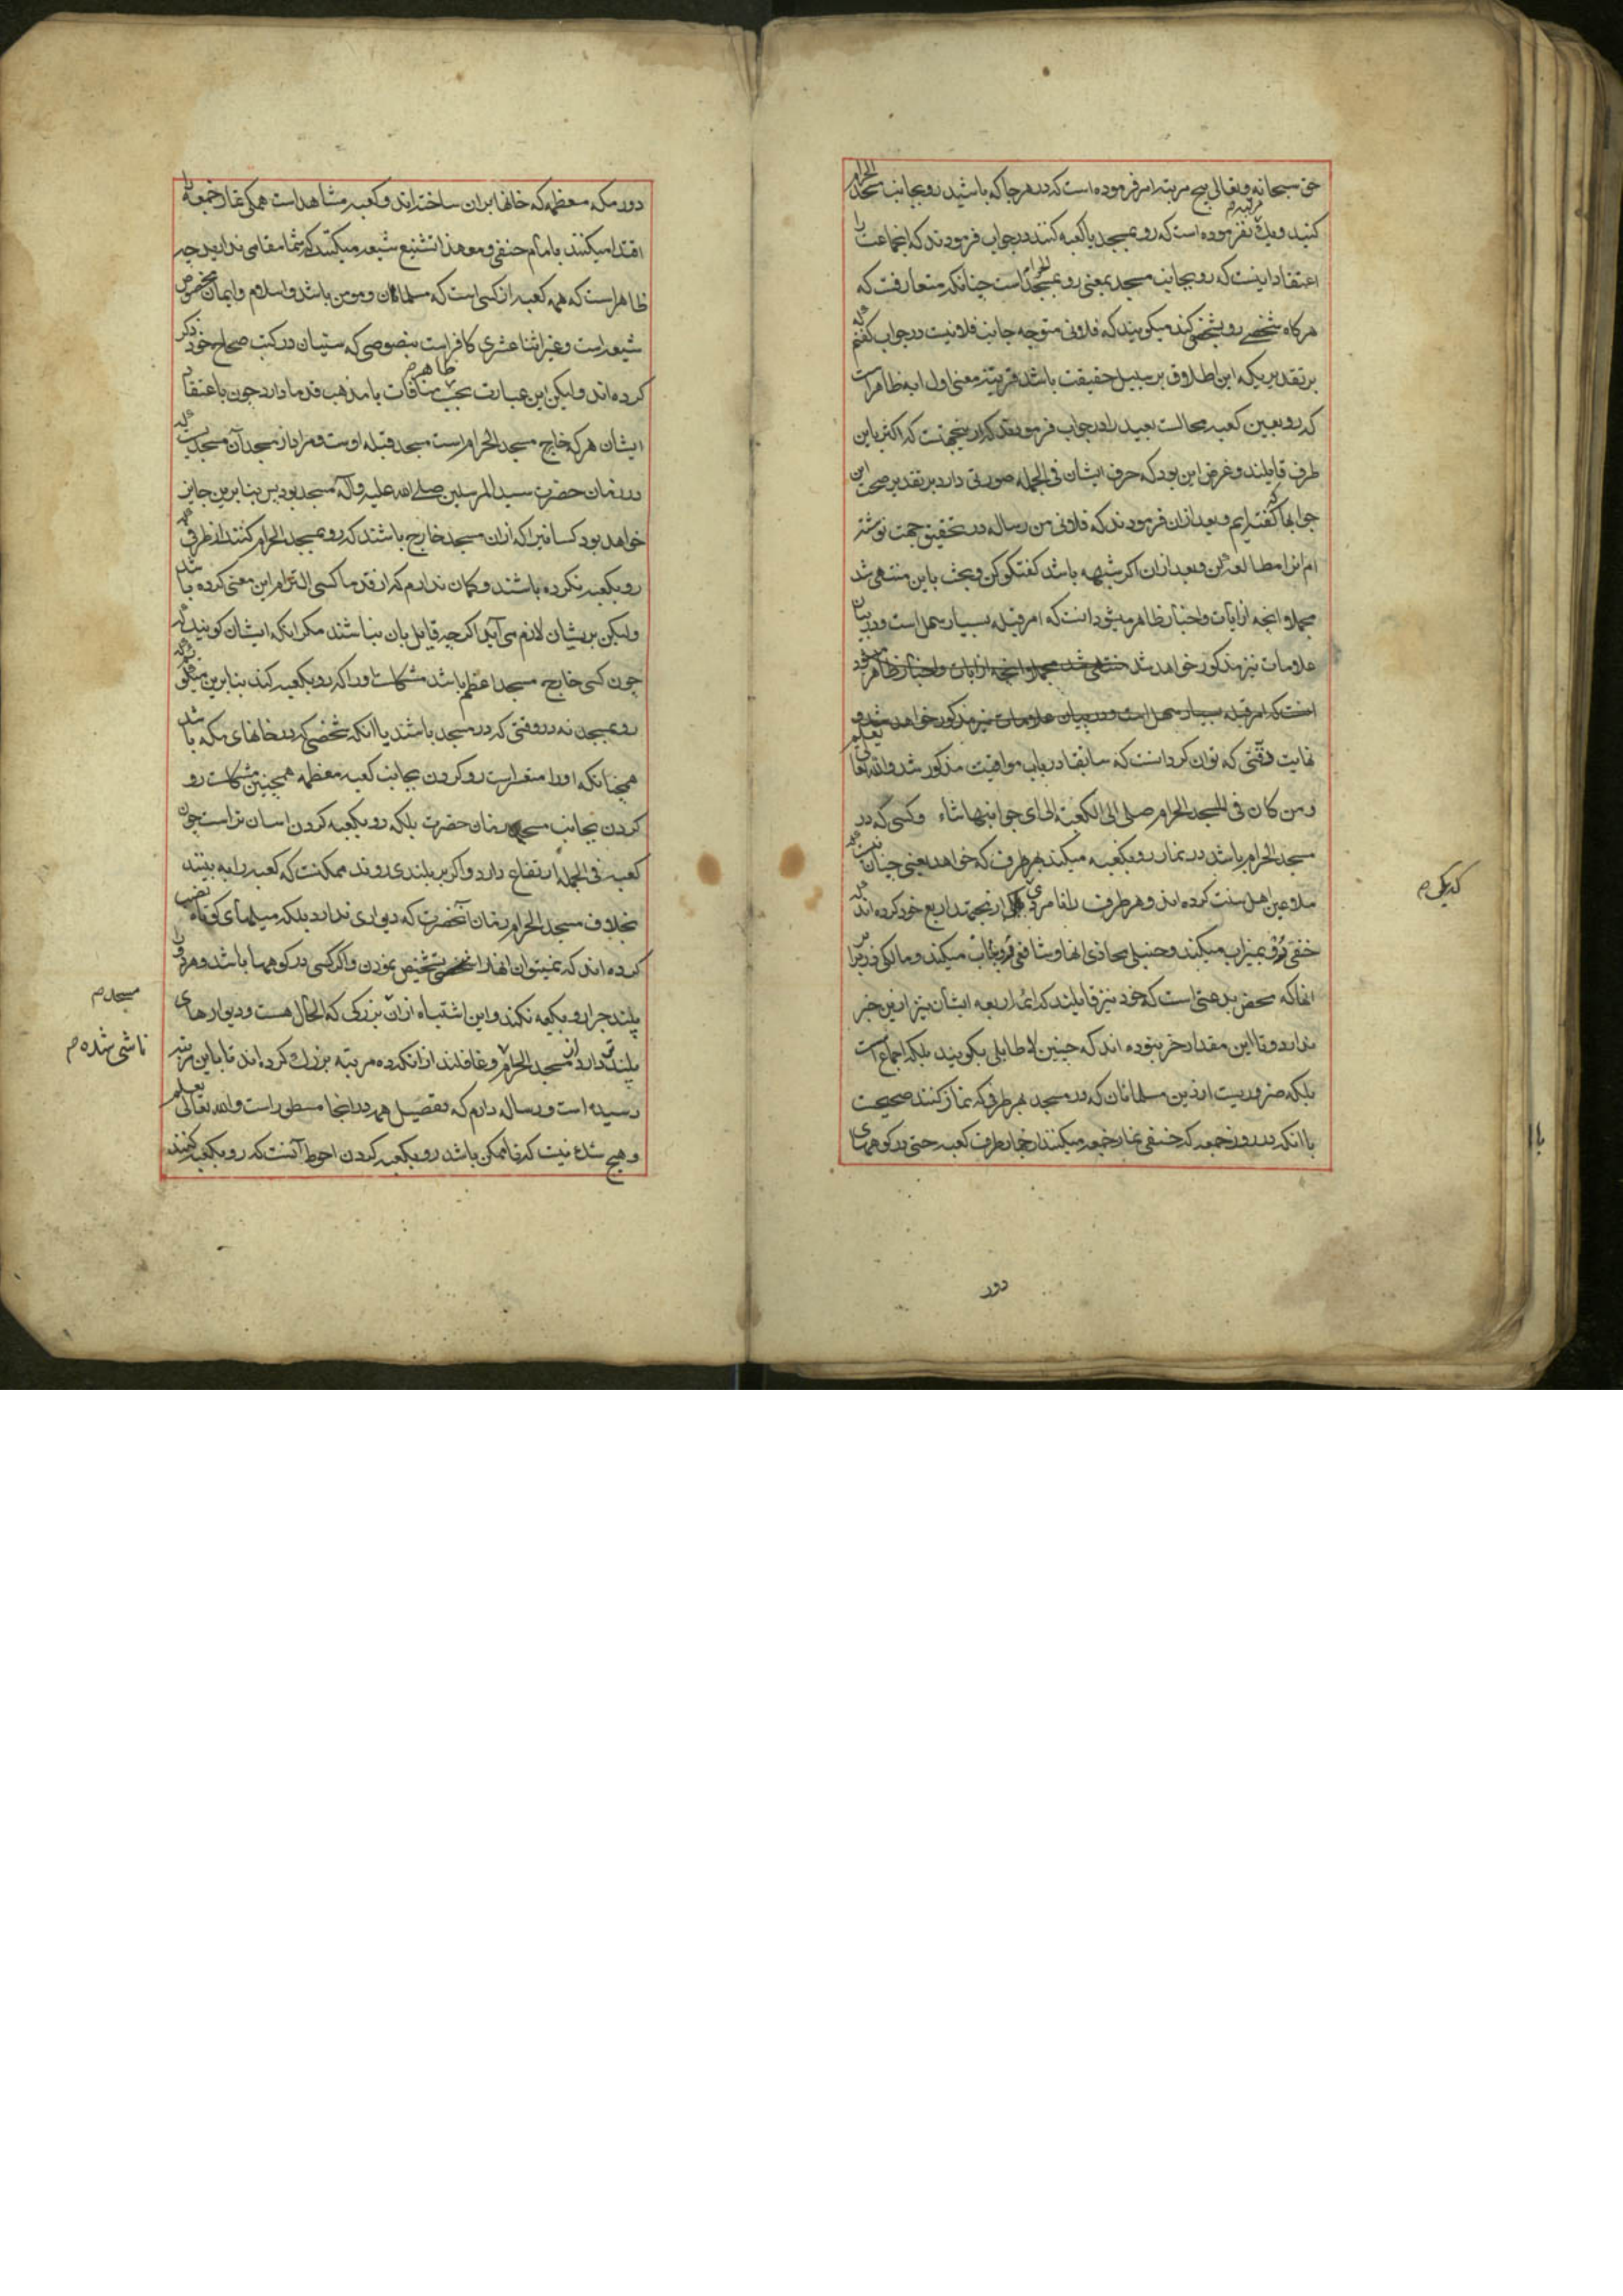 حق سبحانه و تعالی پنج مرتبه امر فرموده است که در هر جا که باشید رو بجانب مسجد الحرام
کنید و یک مرتبه نفرموده است که رو بمسجد یا کعبه کنند در جواب فرمودند که این جماعت را
اعتقاد اینست که رو بجانب مسجد بمعنی رو بمسجد الحرام است چنانکه متعارفست که
هر کاه شخصی رو بشخصی کند میکویند که فلانی متوجه جانب فلانیست در جواب کفتم که
بر تقدیریکه این اطلاق بر سبیل حقیقت باشد قرینه معنی اول ابه ظاهر است
که رو بعین کعبه محالست بعید را در جواب فرمودند که ازینجهتست که اکثر باین
طرف قایلند و غرض این بود که حرف ایشان فی الجمله صورتی دارد بر تقدیر صحت این
جوابها که کفته ایم و بعد ازان فرمودند که فلانی من رساله در تحقیق جهت نوشته
ام انرا مطالعه کن و بعد ازان اکر شبهه باشد کفتکو کن و بحث باین منتهی شد
مجملا و انچه از آیات و اخبار ظاهر میشود انست که امر قبله بسیار سهل است و در بیان
علامات نیز مذکور خواهد شد منتهی شد مجملا و انچه از ایات و اخبار ظاهر میشود
انست که امر قبله بسیار سهل است و در بیان علامات نیز مذکور خواهد شد و
نهایت دقتی که توان کرد انست که سابقا در باب مواقیت مذکور شد و الله تعالی یعلم
و من کان فی المسجد الحرام صلی الی الکعبة الی ای جوانبها شاء و کسی که در
مسجد الحرام باشد در نماز رو بکعبه میکند بهر طرف که خواهد یعنی چنان نیست که
ملاعین اهل سنت کرده اند و هر طرف را مقام یکی از مجتهد اربع خود کرده اند که
حنفی رو بمیزاب میکند و حنبلی محاذی انها و شافعی و مالکی در برابر
انها که محض بدعتی است که خود نیز قایلند که ائمه اربعه ایشان نیز ازین خبر
ندارد و تا این مقدار خر نبوده اند که چنین لاطایلی بکویند بلکه اجماع است
بلکه ضروریست از دین مسلمانان که در مسجد بهر طرف که نماز کنند صحیحست
با انکه در روز جمعه که حنفی نماز جمعه میکند از چهار طرف کعبه حتی در کوههای
که یکی م
دور
دور مکه معظمه که خانها بران ساخته اند و کعبه مشاهد است همکی نماز جمعه را
اقتدا میکنند بامام حنفی و مع هذا تشنیع شیعه میکنند که شما مقامی ندارید چه
ظاهر است که همه کعبه از کسی است که مسلمان و مومن باشد و اسلام و ایمان مخصوص
شیعه است و غیر اثنا عشری کافر است بنصوصی که سنیان در کتب صحاح خود ذکر
کرده اند و لیکن این عبارت بحسب ظاهر م منافات با مذهب قدما دارد چون باعتقاد
ایشان هر که خارج مسجد الحرام است مسجد قبله اوست و مراد از مسجد آن مسجدیست که
در زمان حضرت سید المرسلین صلی الله علیه و آله مسجد بود پس بنابرین جایز
خواهد بود کسانیرا که ازان مسجد خارج باشند که رو بمسجد الحرام کنند از طرفی که
رو بکعبه نکرده باشند و کمان ندارم که از قدما کسی التزام این معنی کرده باشد
و لیکن بریشان لازم می آید اکرچه قایل بان نباشند مکر انکه ایشان کویند که
چون کسی خارج مسجد اعظم باشد مشکلست او را که رو بکعبه کند بنابرین میکویند که
رو بمسجد نه در وقتی که در مسجد باشند یا انکه شخصی که در خانهای مکه باشد
همچنانکه او را متعسر است رو کردن بجانب کعبه معظمه همچنین مشکلست رو
کردن بجانب مسجد زمان حضرت بلکه رو بکعبه کردن اسان تر است چون
کعبه فی الجمله ارتفاع دارد و اکر بر بلندی روند ممکنست که کعبه را به بینند
بخلاف مسجد الحرام زمان آنحضرت که دیواری ندارد بلکه میلهای کوتاه نصب
کرده اند که نمیتوان انها را تشخیص نمودن و اکر کسی در کوهها باشد و هر
بلند چرا رو بکعبه نکند و این اشتباه ازان بزرکی که الحال هست و دیوارهای
بلند دارد از مسجد الحرام و غافلند از انکه ده مرتبه بزرک کرده اند تا باین مرتبه
رسیده است و رساله دارم که تفصیل همه در انجا مسطور است و الله تعالی یعلم
و هیچ شک نیست که تا ممکن باشد رو بکعبه کردن احوط آنست که رو بکعبه کنند
مسجد م
ناشی شده م